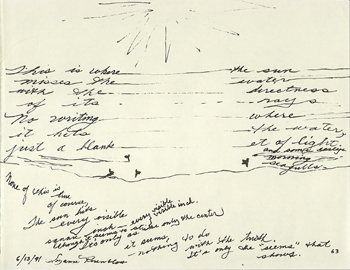 This is where the sun
misses the water
with the directness
of its rays
No writing where
it hits the water,
just a blanket of light
and some
morning
seagulls.
None of this is true
of course,
The sun hits
every visible
square inch - every visible
only the center
it seems,
- nothing to do
with the truth.
It's only the "seems" that
shows.
6/13/91
63